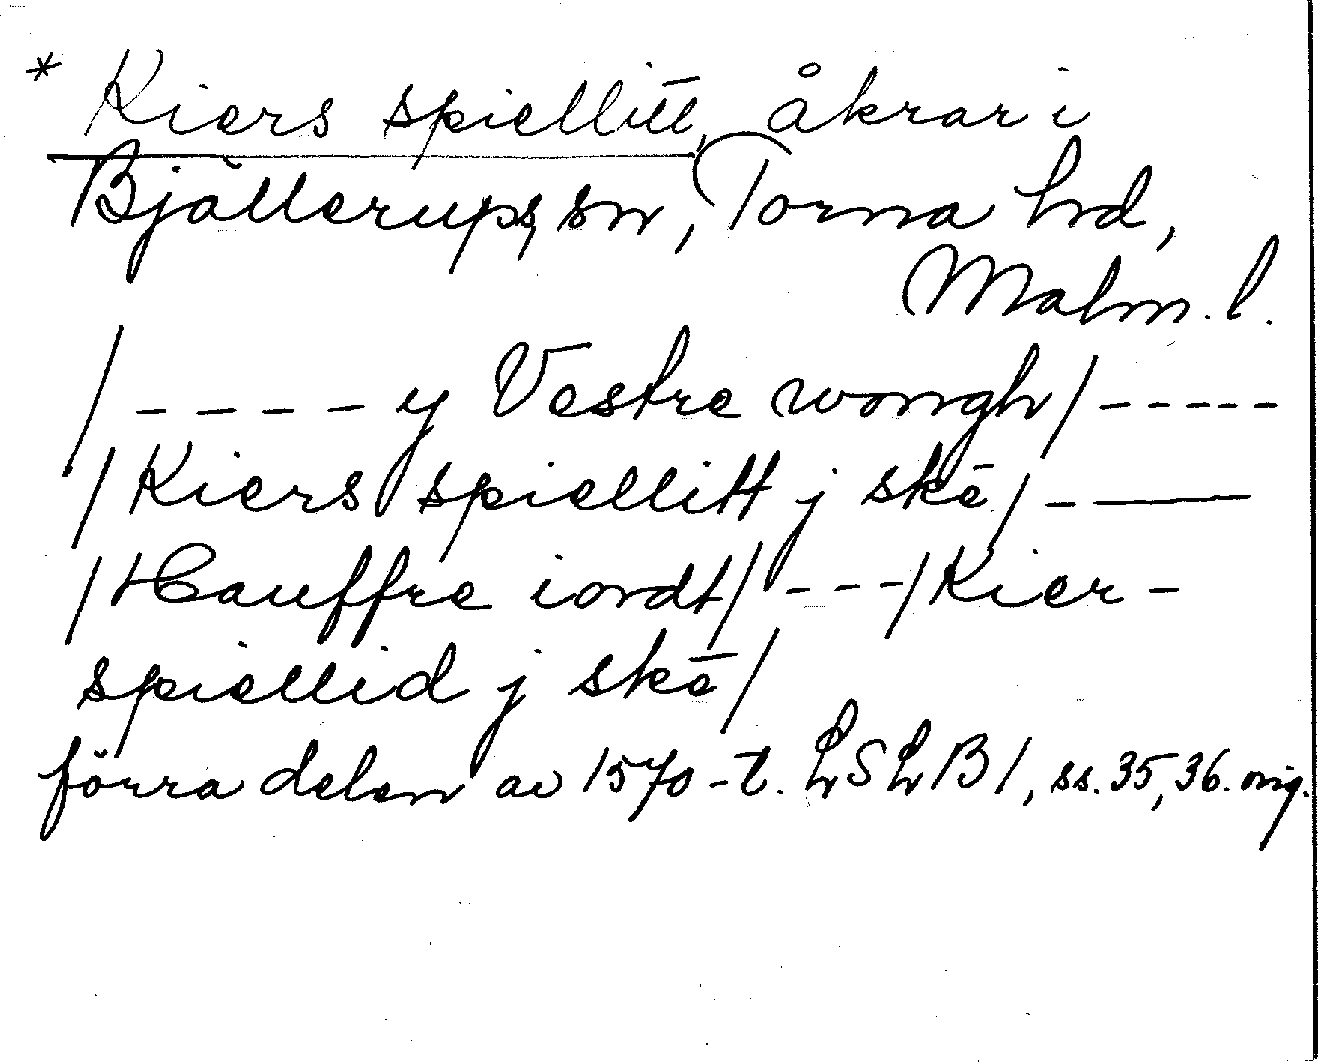 * Kiers spiellitt, åkrar i
Bjällerups sn, Torna hd,
Malm. l.
/ - - - - y Vestre wongh / - - - - -
/ Kiers spiellitt j skē / - —
/ Hauffre iordt / - - - / Kier -
spiellid j skē /
förra delen av 1570-t. LSLB 1, ss. 35, 36. orig.